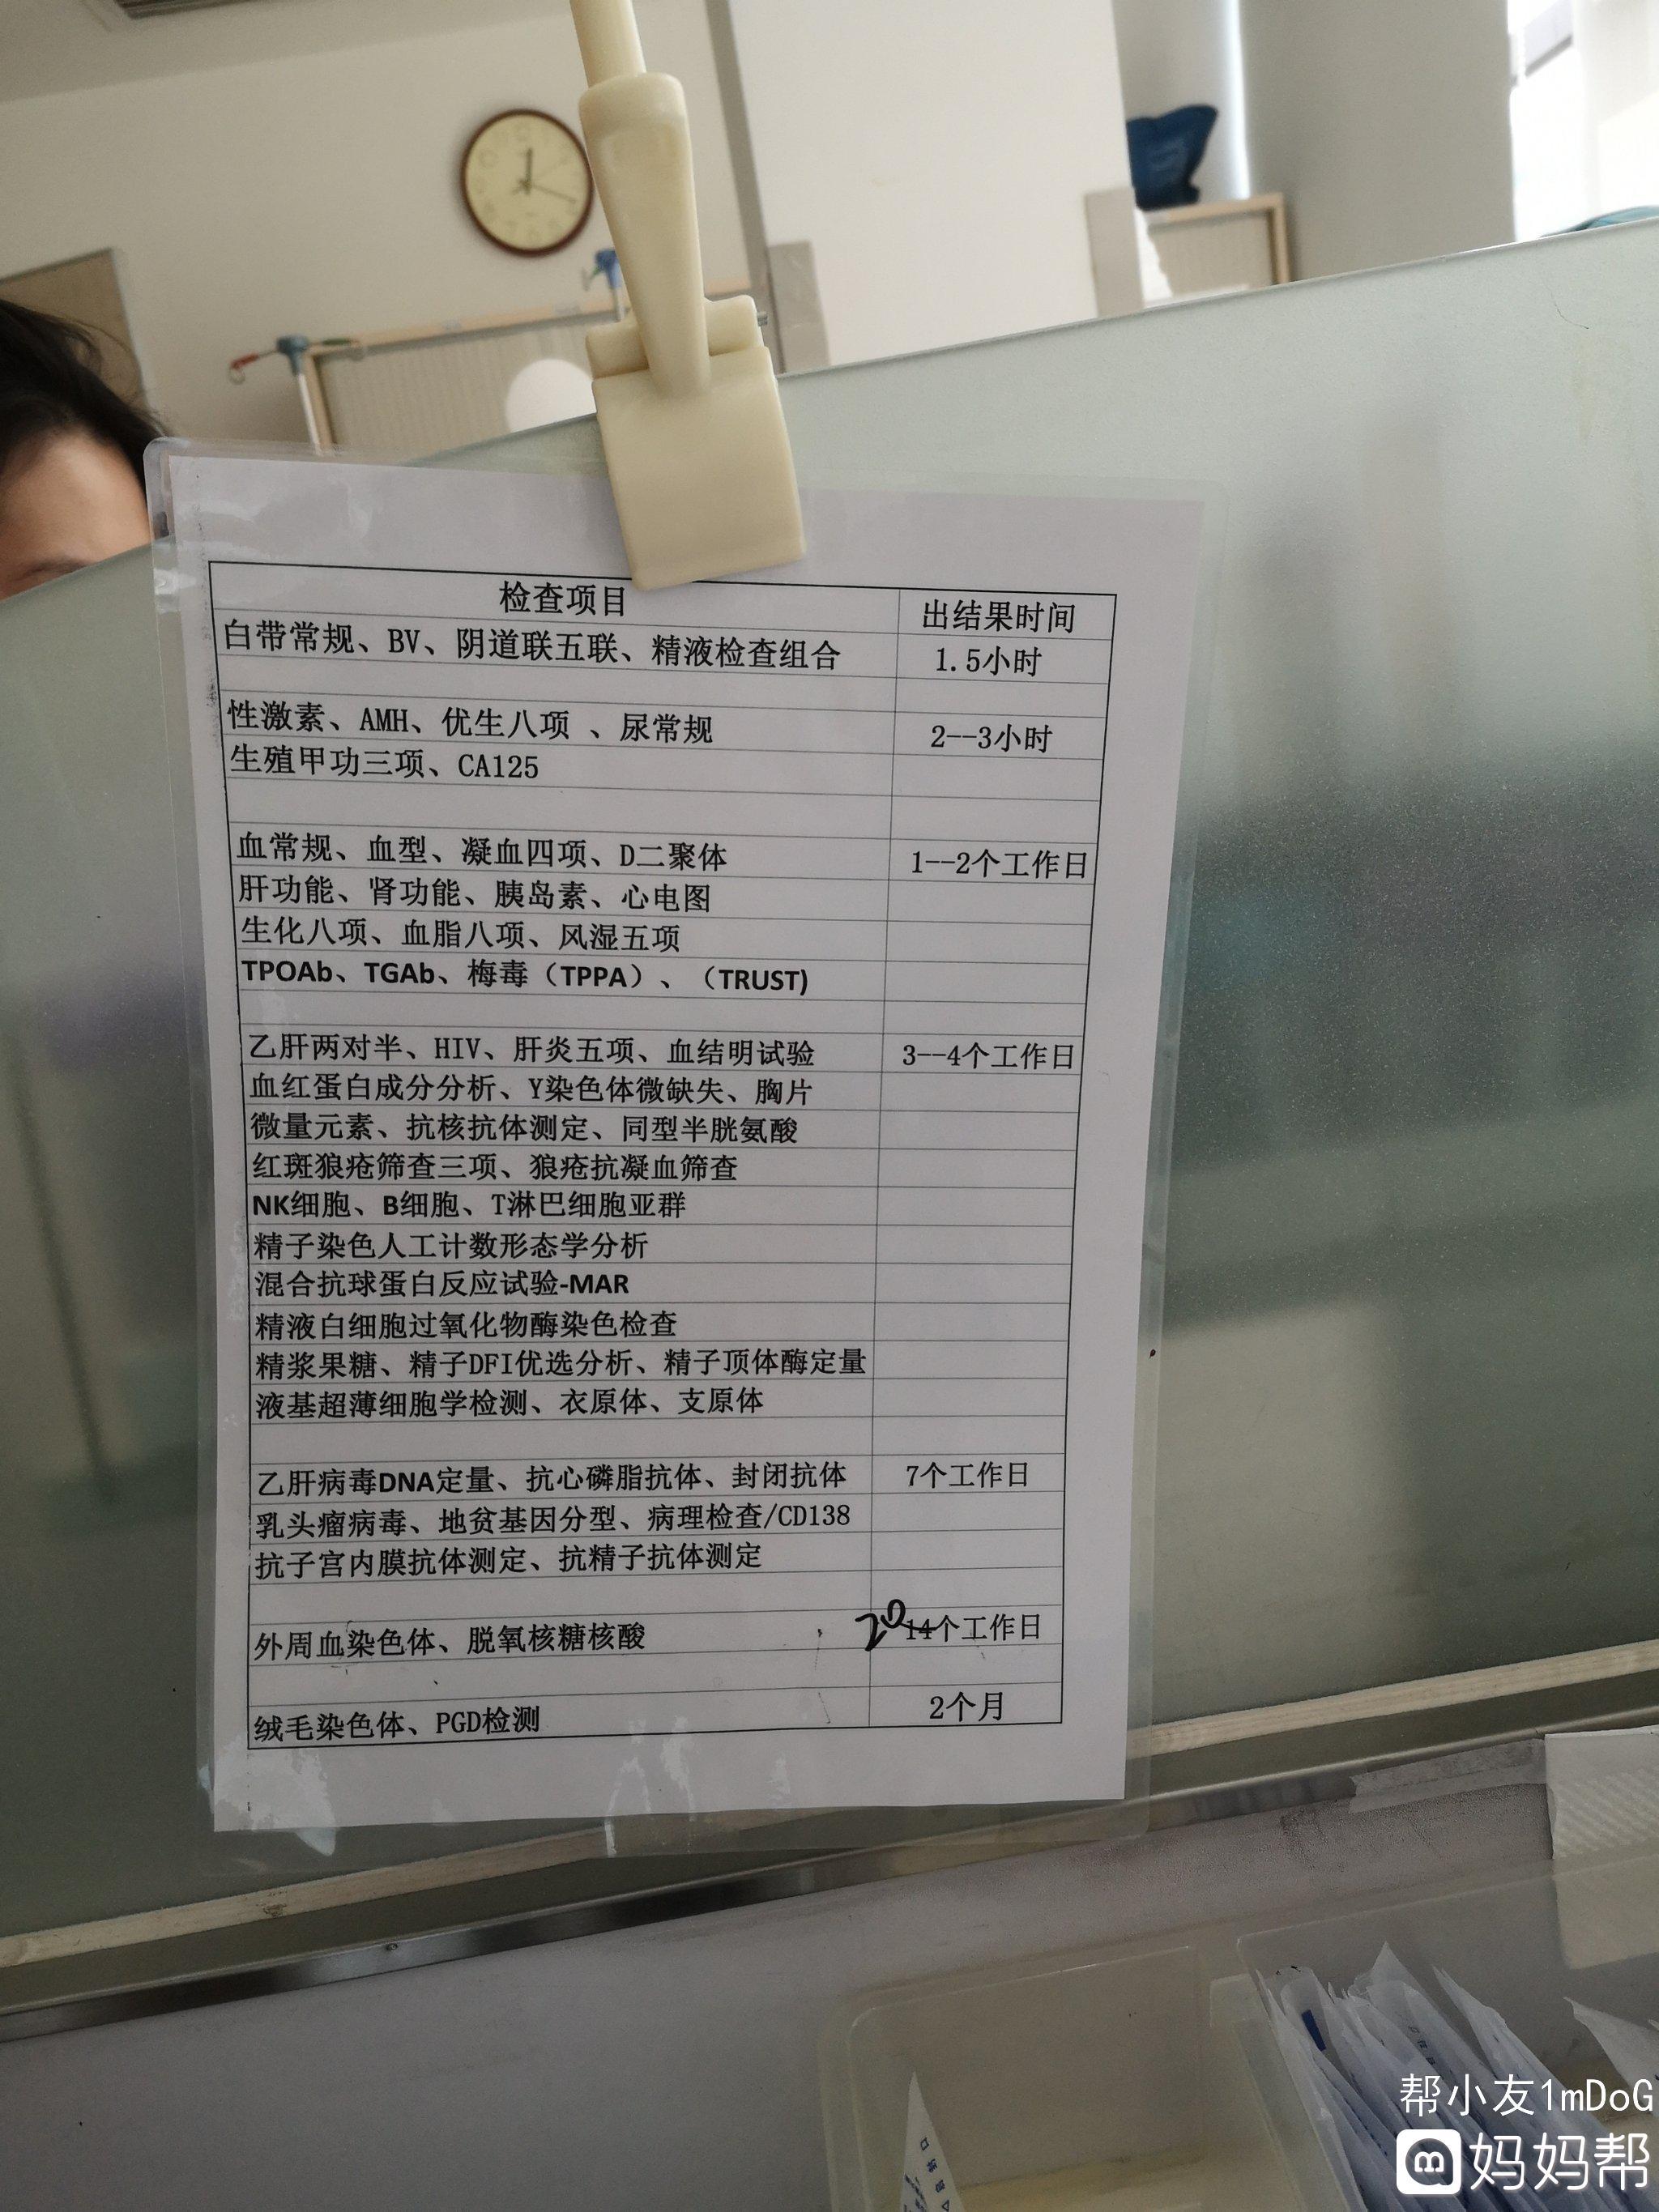 检查项目 出结果时间
白带常规、BV、阴道联五联、精液检查组合 1.5小时
性激素、AMH、优生八项 、尿常规 2--3小时
生殖甲功三项、CA125
血常规、血型、凝血四项、D二聚体 1--2个工作日
肝功能、肾功能、胰岛素、心电图
生化八项、血脂八项、风湿五项
TPOAb、TGAb、梅毒（TPPA）、（TRUST)
乙肝两对半、HIV、肝炎五项、血结明试验 3--4个工作日
血红蛋白成分分析、Y染色体微缺失、胸片
微量元素、抗核抗体测定、同型半胱氨酸
红斑狼疮筛查三项、狼疮抗凝血筛查
NK细胞、B细胞、T淋巴细胞亚群
精子染色人工计数形态学分析
混合抗球蛋白反应试验-MAR
精液白细胞过氧化物酶染色检查
精浆果糖、精子DFI优选分析、精子顶体酶定量
液基超薄细胞学检测、衣原体、支原体
乙肝病毒DNA定量、抗心磷脂抗体、封闭抗体 7个工作日
乳头瘤病毒、地贫基因分型、病理检查/CD138
抗子宫内膜抗体测定、抗精子抗体测定
外周血染色体、脱氧核糖核酸 20 14个工作日
绒毛染色体、PGD检测 2个月
帮小友1mDoG
妈妈帮